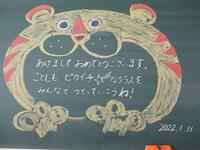 あけまして おめでとうございます。
ことしも ピカイチ なクラスを
みんなで つくっていこうね!
2022.1.11